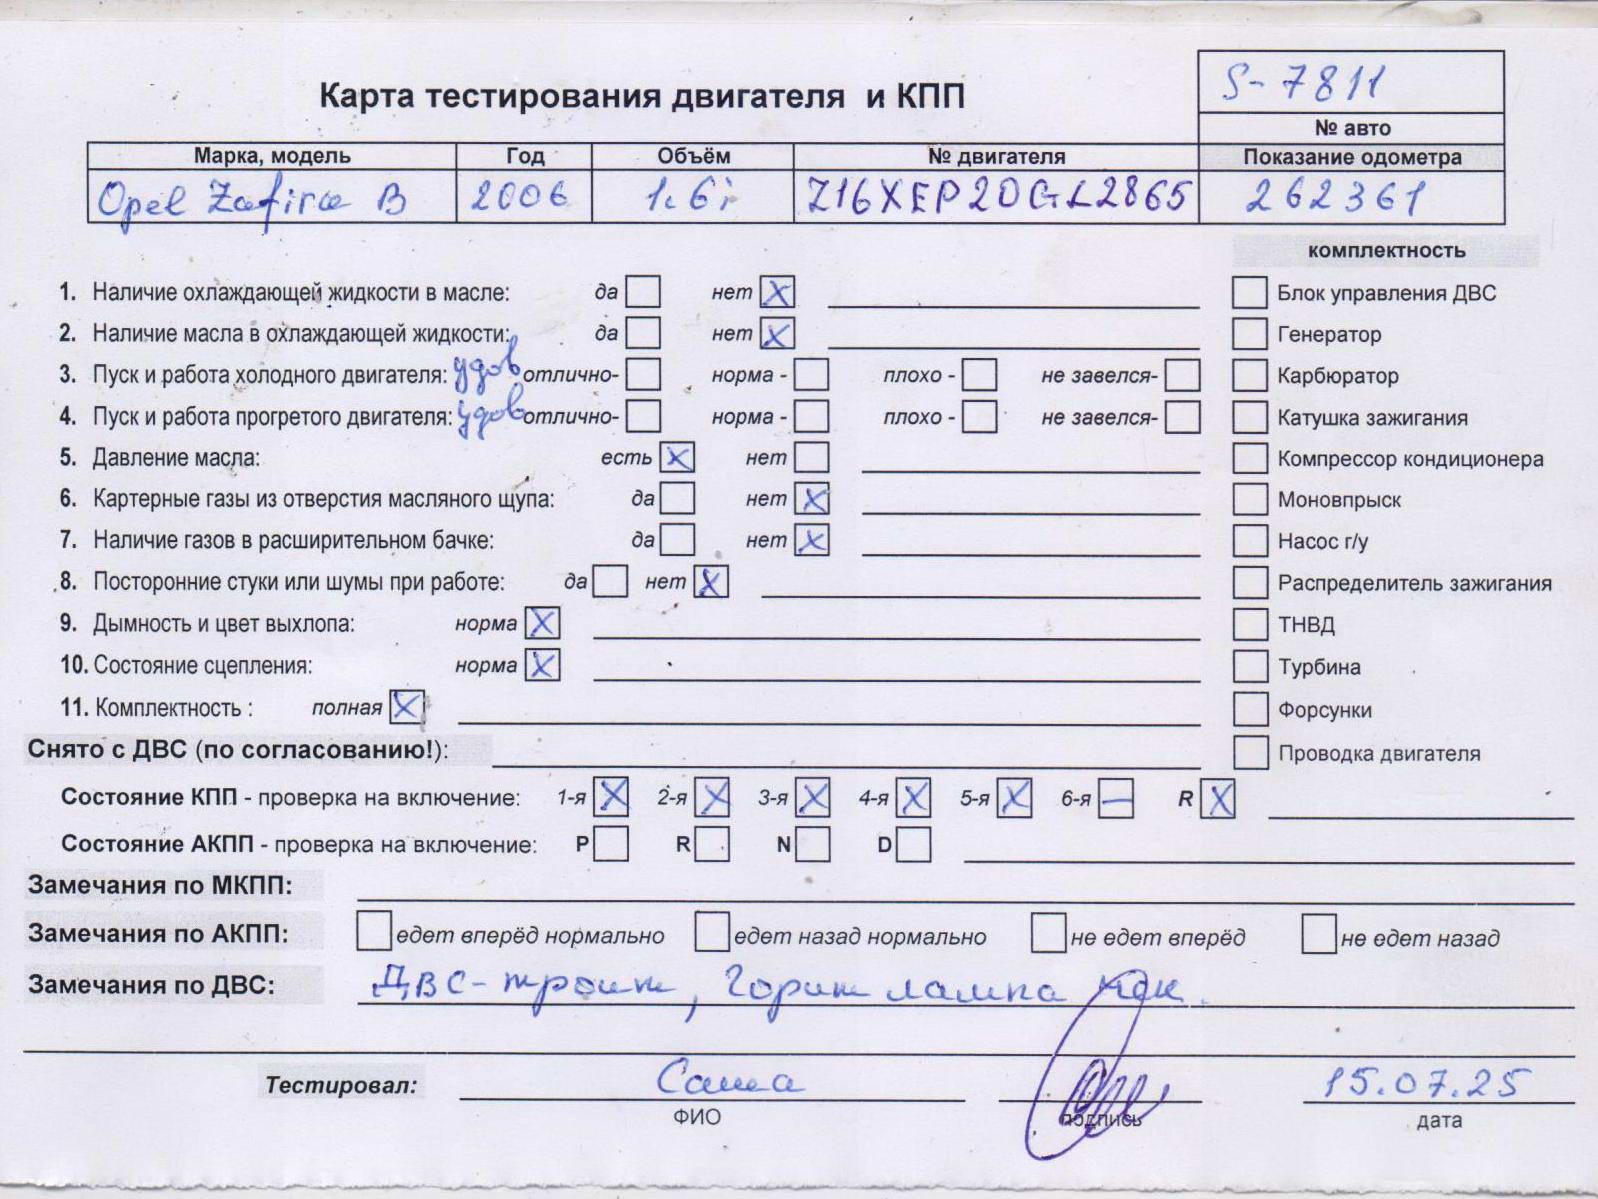 S-7811
Карта тестирования двигателя и КПП
№ авто
Марка, модель Год Объём № двигателя Показание одометра
Opel Zafira B 2006 1.6i Z16XEP20GL2865 262361
комплектность
1. Наличие охлаждающей жидкости в масле: да нет X Блок управления ДВС
2. Наличие масла в охлаждающей жидкости: да нет X Генератор
3. Пуск и работа холодного двигателя: удов отлично- норма - плохо - не завелся- Карбюратор
4. Пуск и работа прогретого двигателя: удов отлично- норма - плохо - не завелся- Катушка зажигания
5. Давление масла: есть X нет Компрессор кондиционера
6. Картерные газы из отверстия масляного щупа: да нет X Моновпрыск
7. Наличие газов в расширительном бачке: да нет X Насос г/у
8. Посторонние стуки или шумы при работе: да нет X Распределитель зажигания
9. Дымность и цвет выхлопа: норма X ТНВД
10. Состояние сцепления: норма X Турбина
11. Комплектность : полная X Форсунки
Снято с ДВС (по согласованию!): Проводка двигателя
Состояние КПП - проверка на включение: 1-я X 2-я X 3-я X 4-я X 5-я X 6-я — R X
Состояние АКПП - проверка на включение: P R N D
Замечания по МКПП:
Замечания по АКПП: едет вперёд нормально едет назад нормально не едет вперёд не едет назад
Замечания по ДВС: ДВС - троит, Горит лампа
Тестировал: Саша 15.07.25
ФИО подпись дата